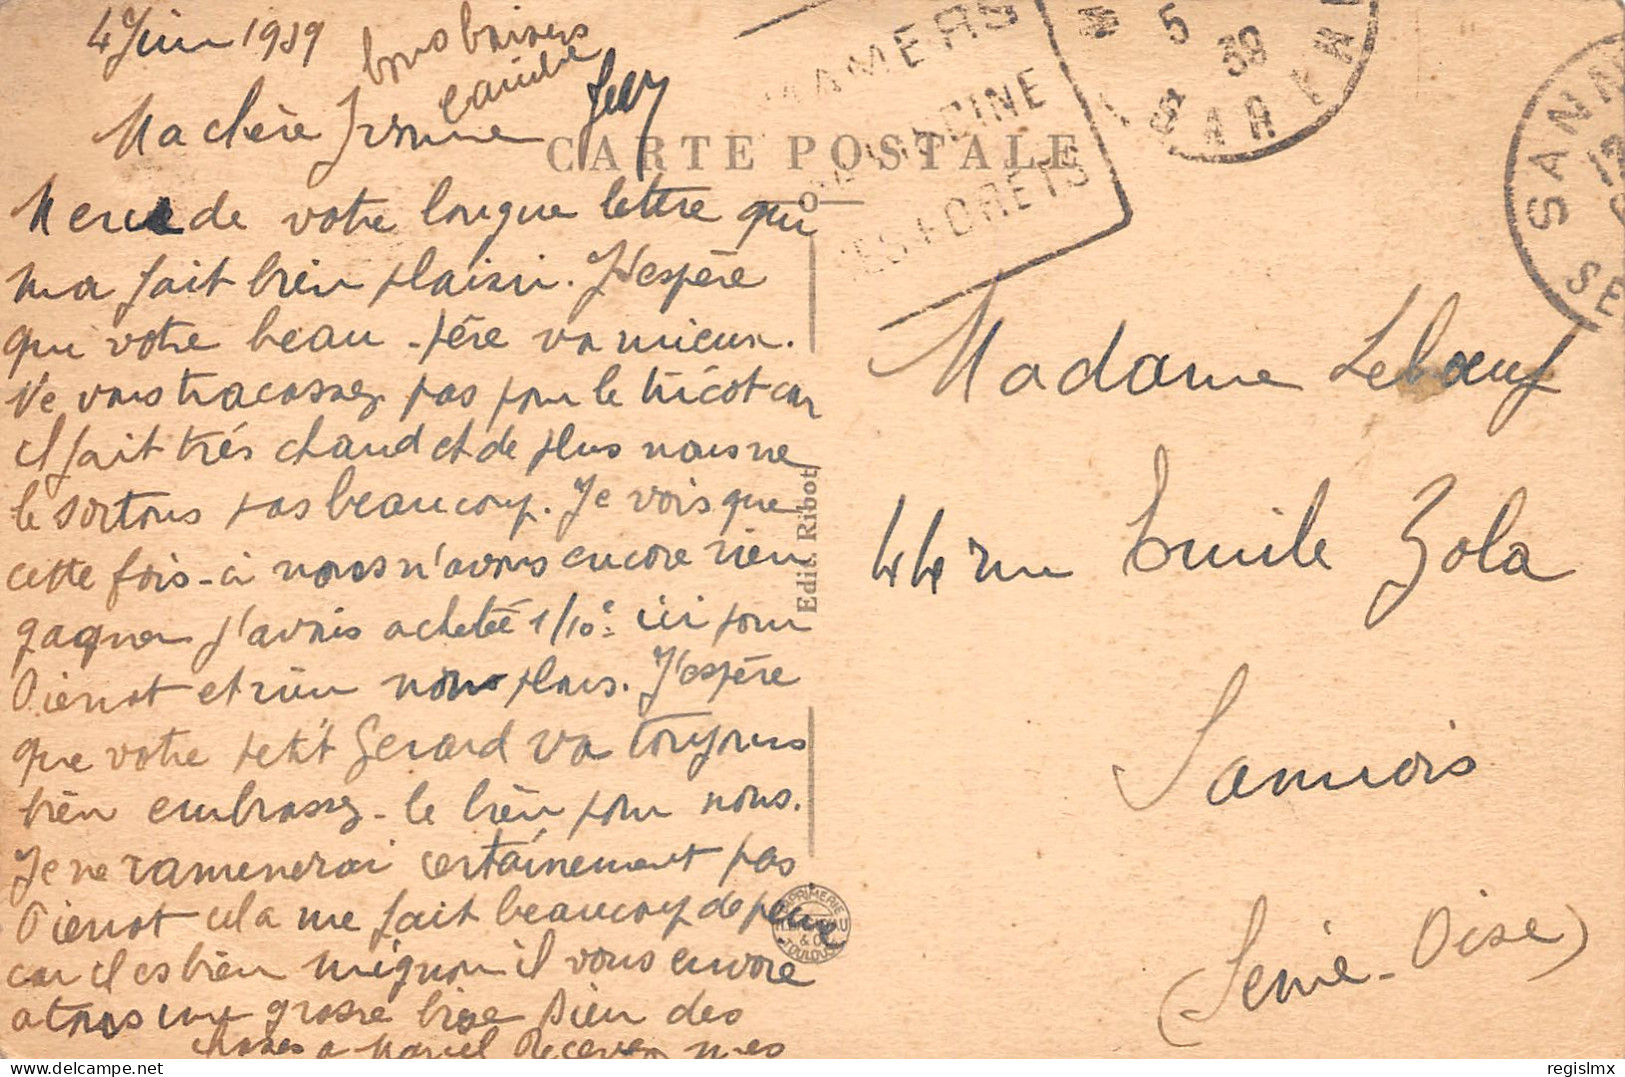 4 Juin 1939
Ma chère Yvonne
bons baisers
Lucy
Merci de votre longue lettre qui
m'a fait bien plaisir. J'espère
que votre beau-père va mieux.
Ne vous tracassez pas pour le tricot car
il fait très chaud et de plus nous ne
le sortons pas beaucoup. Je vois que
cette fois-ci nous n'avons encore rien
gagner j'avais acheté 1/10e ici pour
Pierrot et rien non plus. J'espère
que votre petit Gerard va toujours
bien embrassez-le bien pour nous.
Je ne ramenerai certainement pas
Pierrot cela me fait beaucoup de peine
car il est bien mignon il vous envoie
a tous une grosse bise bien des
choses a Marcel Recevez mes
CARTE POSTALE
Edit. Ribot
IMPRIMERIE
& C
TOULOUSE
MAMERS
PISCINE
SES FORETS
5
39
SARTHE
SANN
12
SE
Madame Leboeuf
44 rue Emile Zola
Sannois
(Seine-Oise)
regislmx